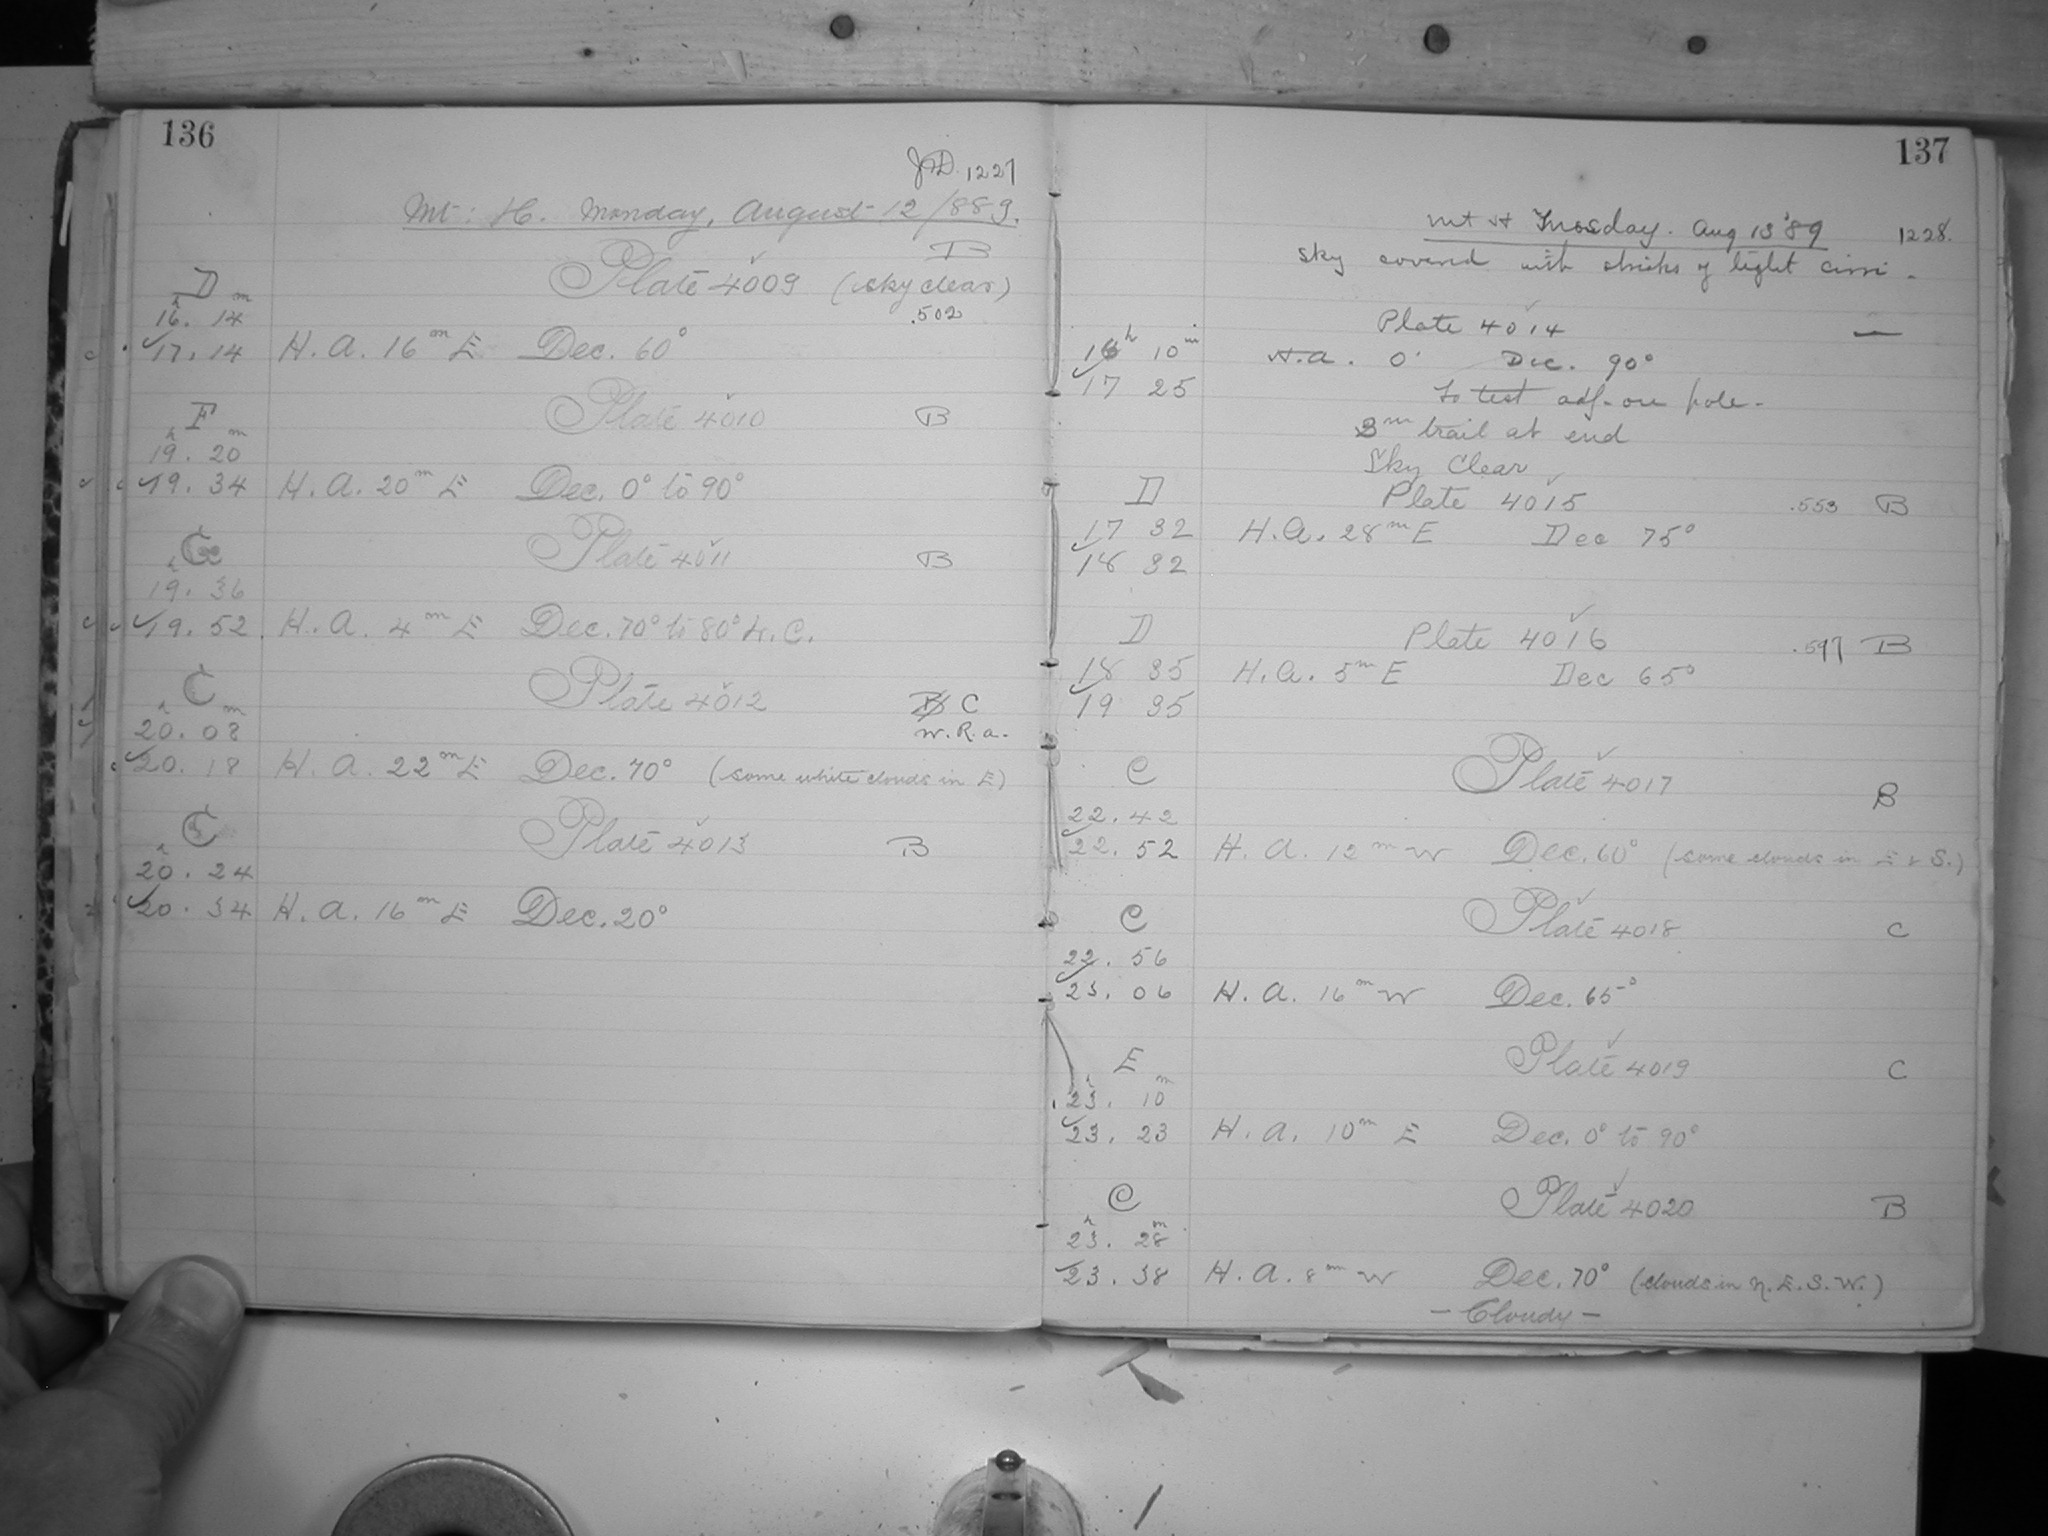 136
J.D. 1227
Mt: H. Monday, August 12/889.
B
D Plate 4009 (sky clear)
h m
16. 14 .502
17. 14 H. A. 16 m E Dec. 60°
F Plate 4010 B
h m
19. 20
19. 34 H. A. 20 m E Dec. 0° to 90°
G Plate 4011 B
h
19. 36
19. 52. H. A. 4 m E Dec. 70° to 80° L. C.
C Plate 4012 B C
h m
20. 08 w. R. a.
20. 18 H. A. 22 m E Dec. 70° (some white clouds in E)
C Plate 4013 B
h
20. 24
20. 34 H. A. 16 m E Dec. 20°
137
Mt H Tuesday. Aug 13 '89 1228.
Sky covered with streaks of light cirri -
Plate 4014 —
16 h 10 m H.A. 0' Dec. 90°
17 25 To test adj. on pole -
3 m trail at end
Sky Clear
D Plate 4015 .553 B
17 32 H.A. 28 m E Dec 75°
18 32
D Plate 4016 .597 B
18 35 H.A. 5 m E Dec 65°
19 35
C Plate 4017 B
22. 42
22. 52 H. A. 12 m W Dec. 60° (some clouds in E & S.)
C Plate 4018 C
22. 56
23. 06 H. A. 16 m W Dec. 65°
E Plate 4019 C
h m
23. 10
23. 23 H. A. 10 m E Dec. 0° to 90°
C Plate 4020 B
h m
23. 28
23. 38 H. A. 8 m W Dec. 70° (clouds in N. E. S. W.)
- Cloudy -